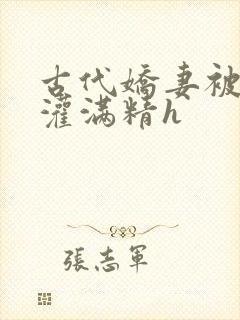 古代嬌妻被
灌滿精h
張志軍